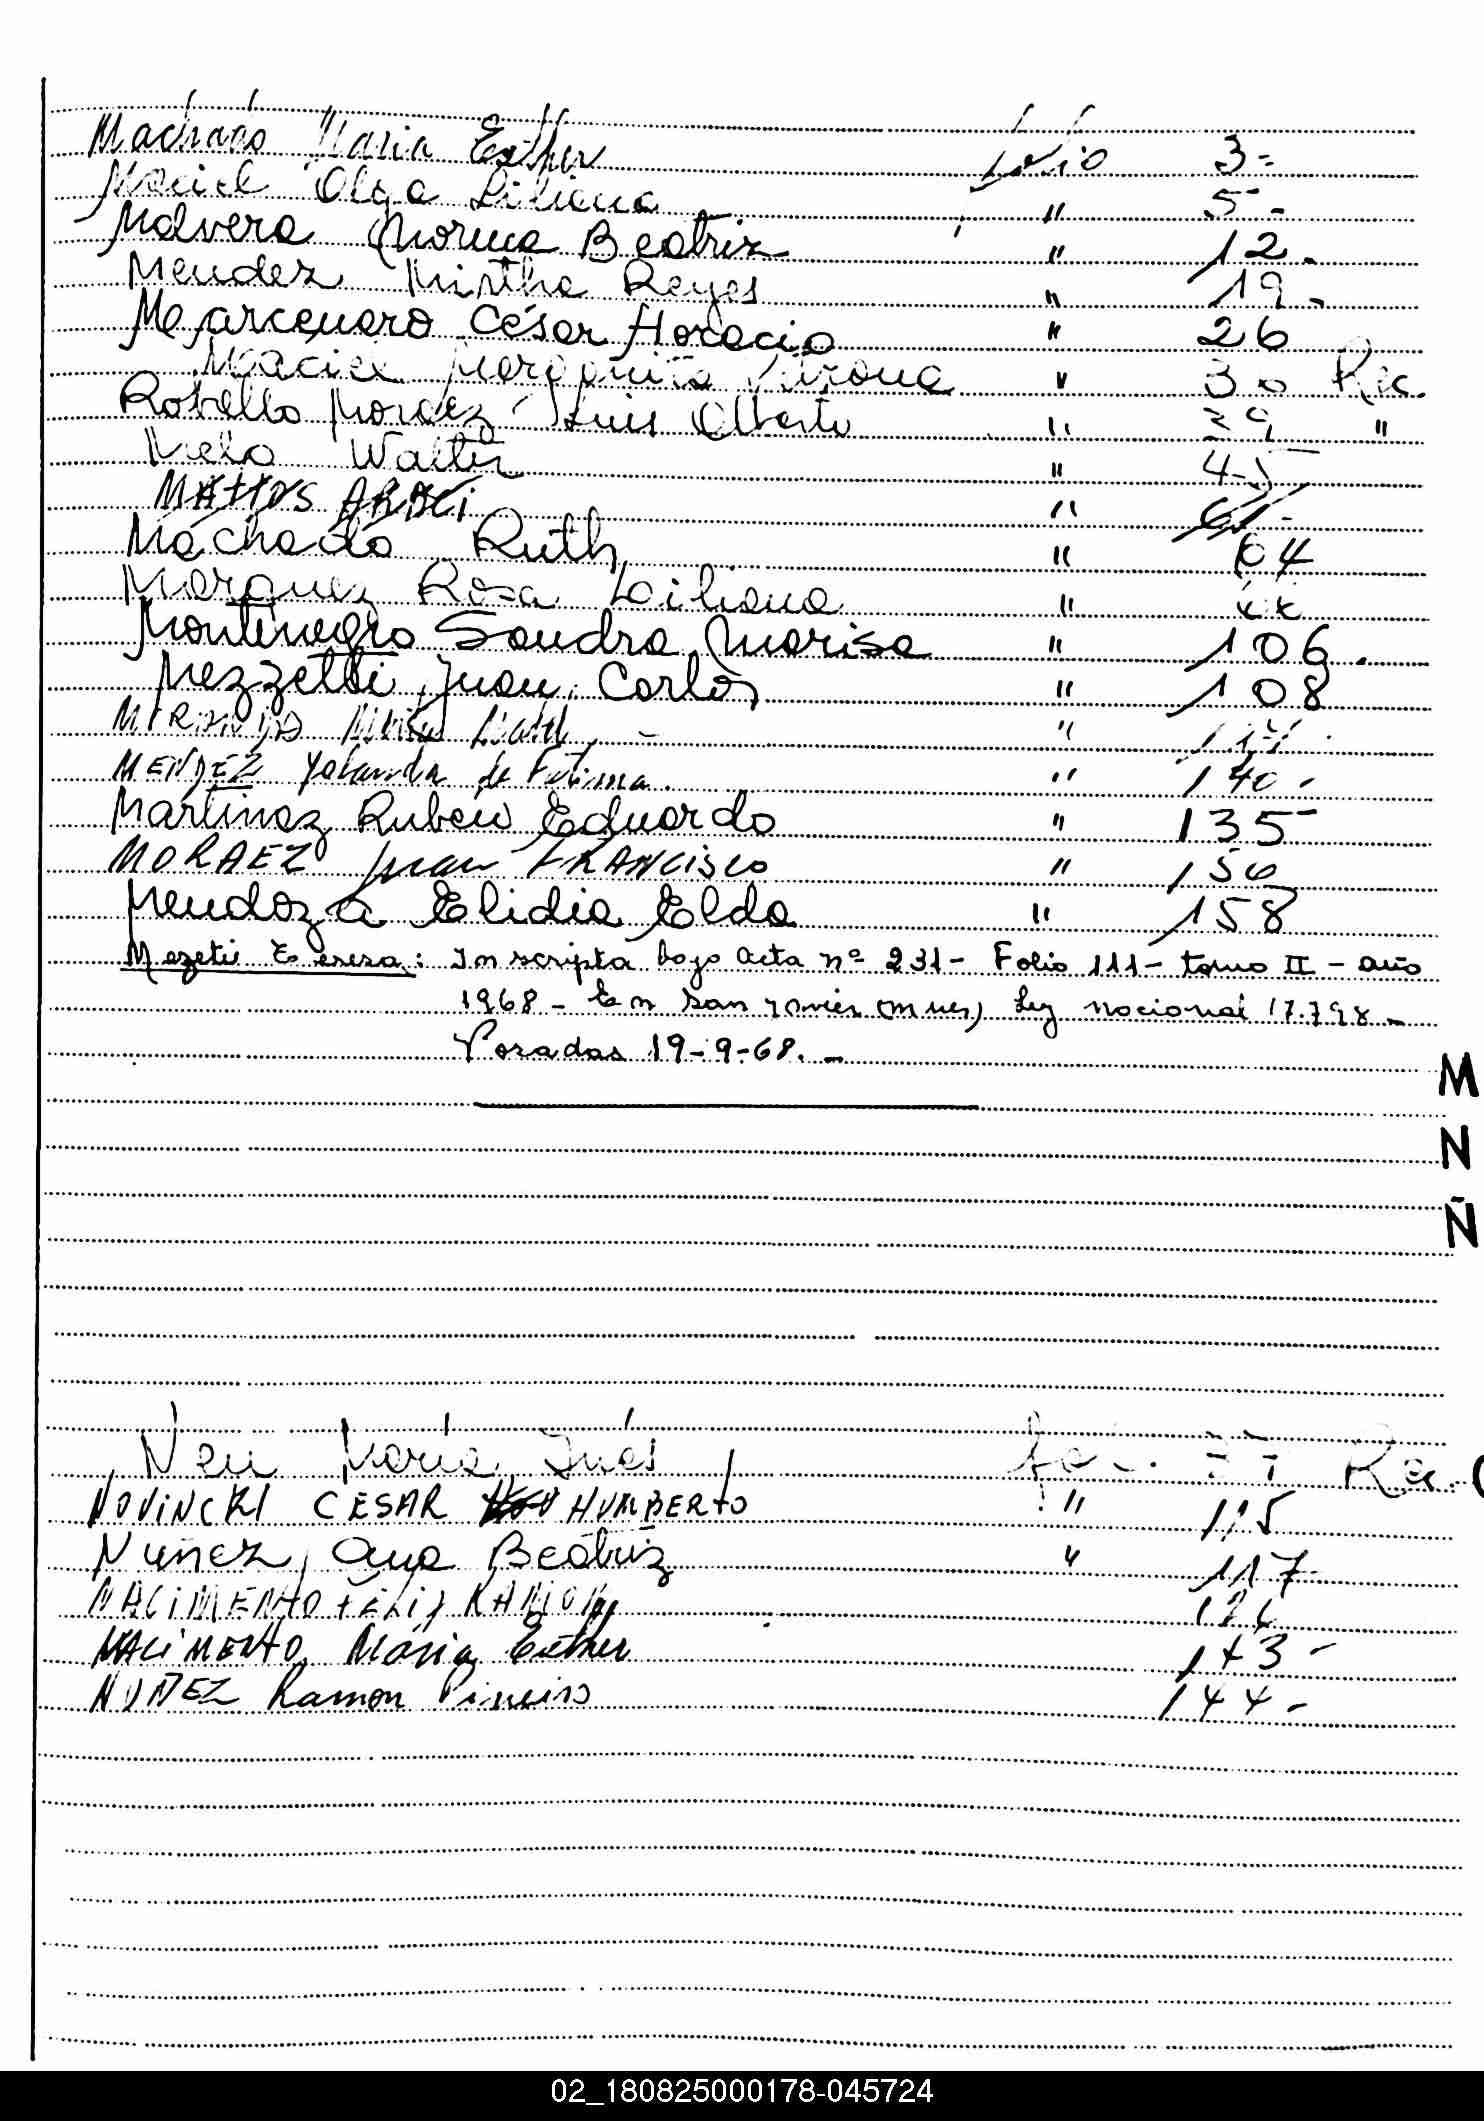 Machado Maria Esther folio 3-
Maciel Olga Liliana " 5-
Malvera Norma Beatriz " 12.
Mendez Mirtha Reyes " 19-
Marcenaro César Horacio " 26
Maciel Margarita " 30 Rec.
Robello Moraez Luis Alberto " 39 "
Melo Walter " 45
MATTOS ARACI " 61-
Machado Ruth " 64
Marquez Rosa Liliana "
Montenegro Sandra Marisa " 106.
Mezzetti Juan Carlos " 108
MIRANDA "
MENDEZ Yolanda de Fatima. " 140-
Martinez Ruben Eduardo " 135-
MORAEZ Juan FRANCISCO " 156
Mendoza Elidia Elda " 158
Mezeti Teresa: Inscripta bajo acta nº 231- Folio 111- tomo II - año
1968- En San Javier (Mnes) Ley nacional 17.798-
Posadas 19-9-68.-
M
N
Ñ
Neu María Inés fol. 77 Rec.
NOVINCKI CESAR HUMBERTO " 115
Nuñez, Ana Beatriz " 117
NACIMENTO FELIZ RAMON
NACIMENTO Maria Esther 143-
NUÑEZ Ramon 144-
02_180825000178-045724